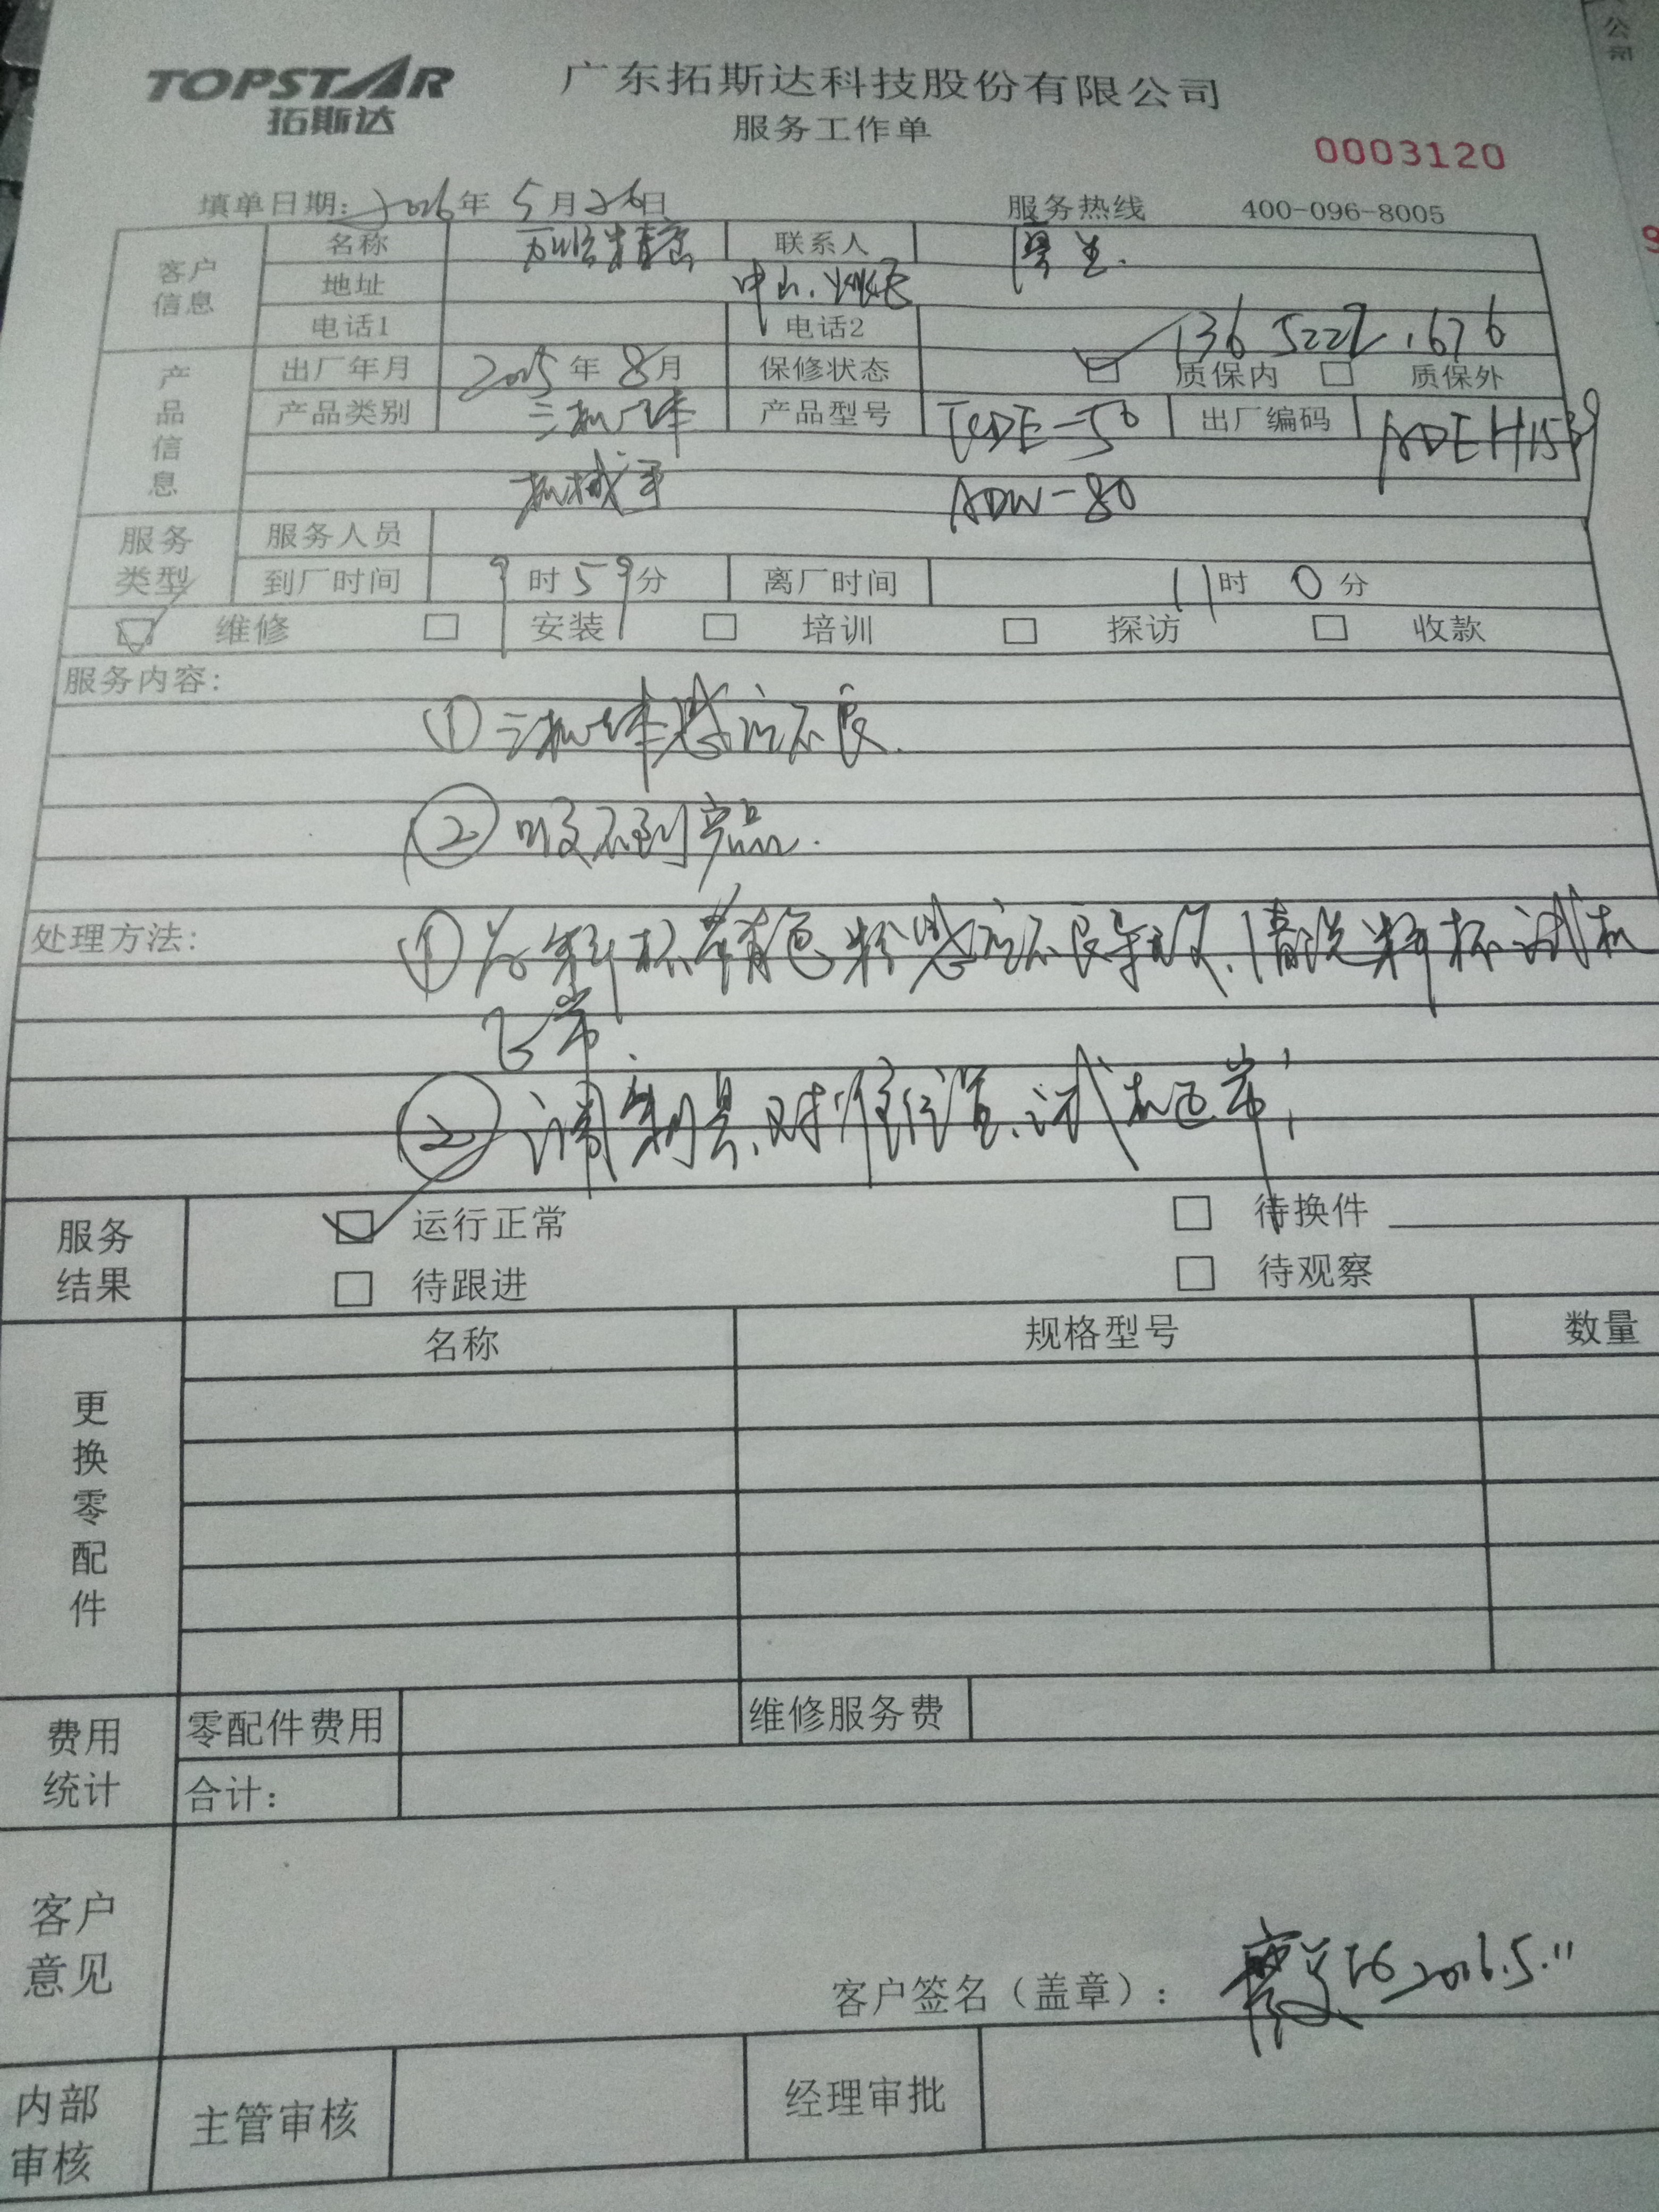 TOPSTAR
拓斯达
广东拓斯达科技股份有限公司
服务工作单
0003120
填单日期: 2016年 5月26日 服务热线 400-096-8005
客户信息 名称 万顺精密 联系人
地址 中山.
电话1 电话2 136 5222 1676
产品信息 出厂年月 2015年 8月 保修状态 质保内 质保外
产品类别 三机一体 产品型号 TCDE-50 出厂编码
机械手 ADW-80
服务类型 服务人员
到厂时间 9时59分 离厂时间 11时 0分
维修 安装 培训 探访 收款
服务内容:
① 三机一体感应不良.
② 吸不到产品.
处理方法: ① 为料杯带有色粉感应不良导致,清洗料杯试机
正常.
② 调制具,对准位置、试机正常!
服务结果 运行正常 待换件
待跟进 待观察
更换零配件 名称 规格型号 数量
费用统计 零配件费用 维修服务费
合计:
客户意见
客户签名(盖章): 2016.5.
内部审核 主管审核 经理审批
公司